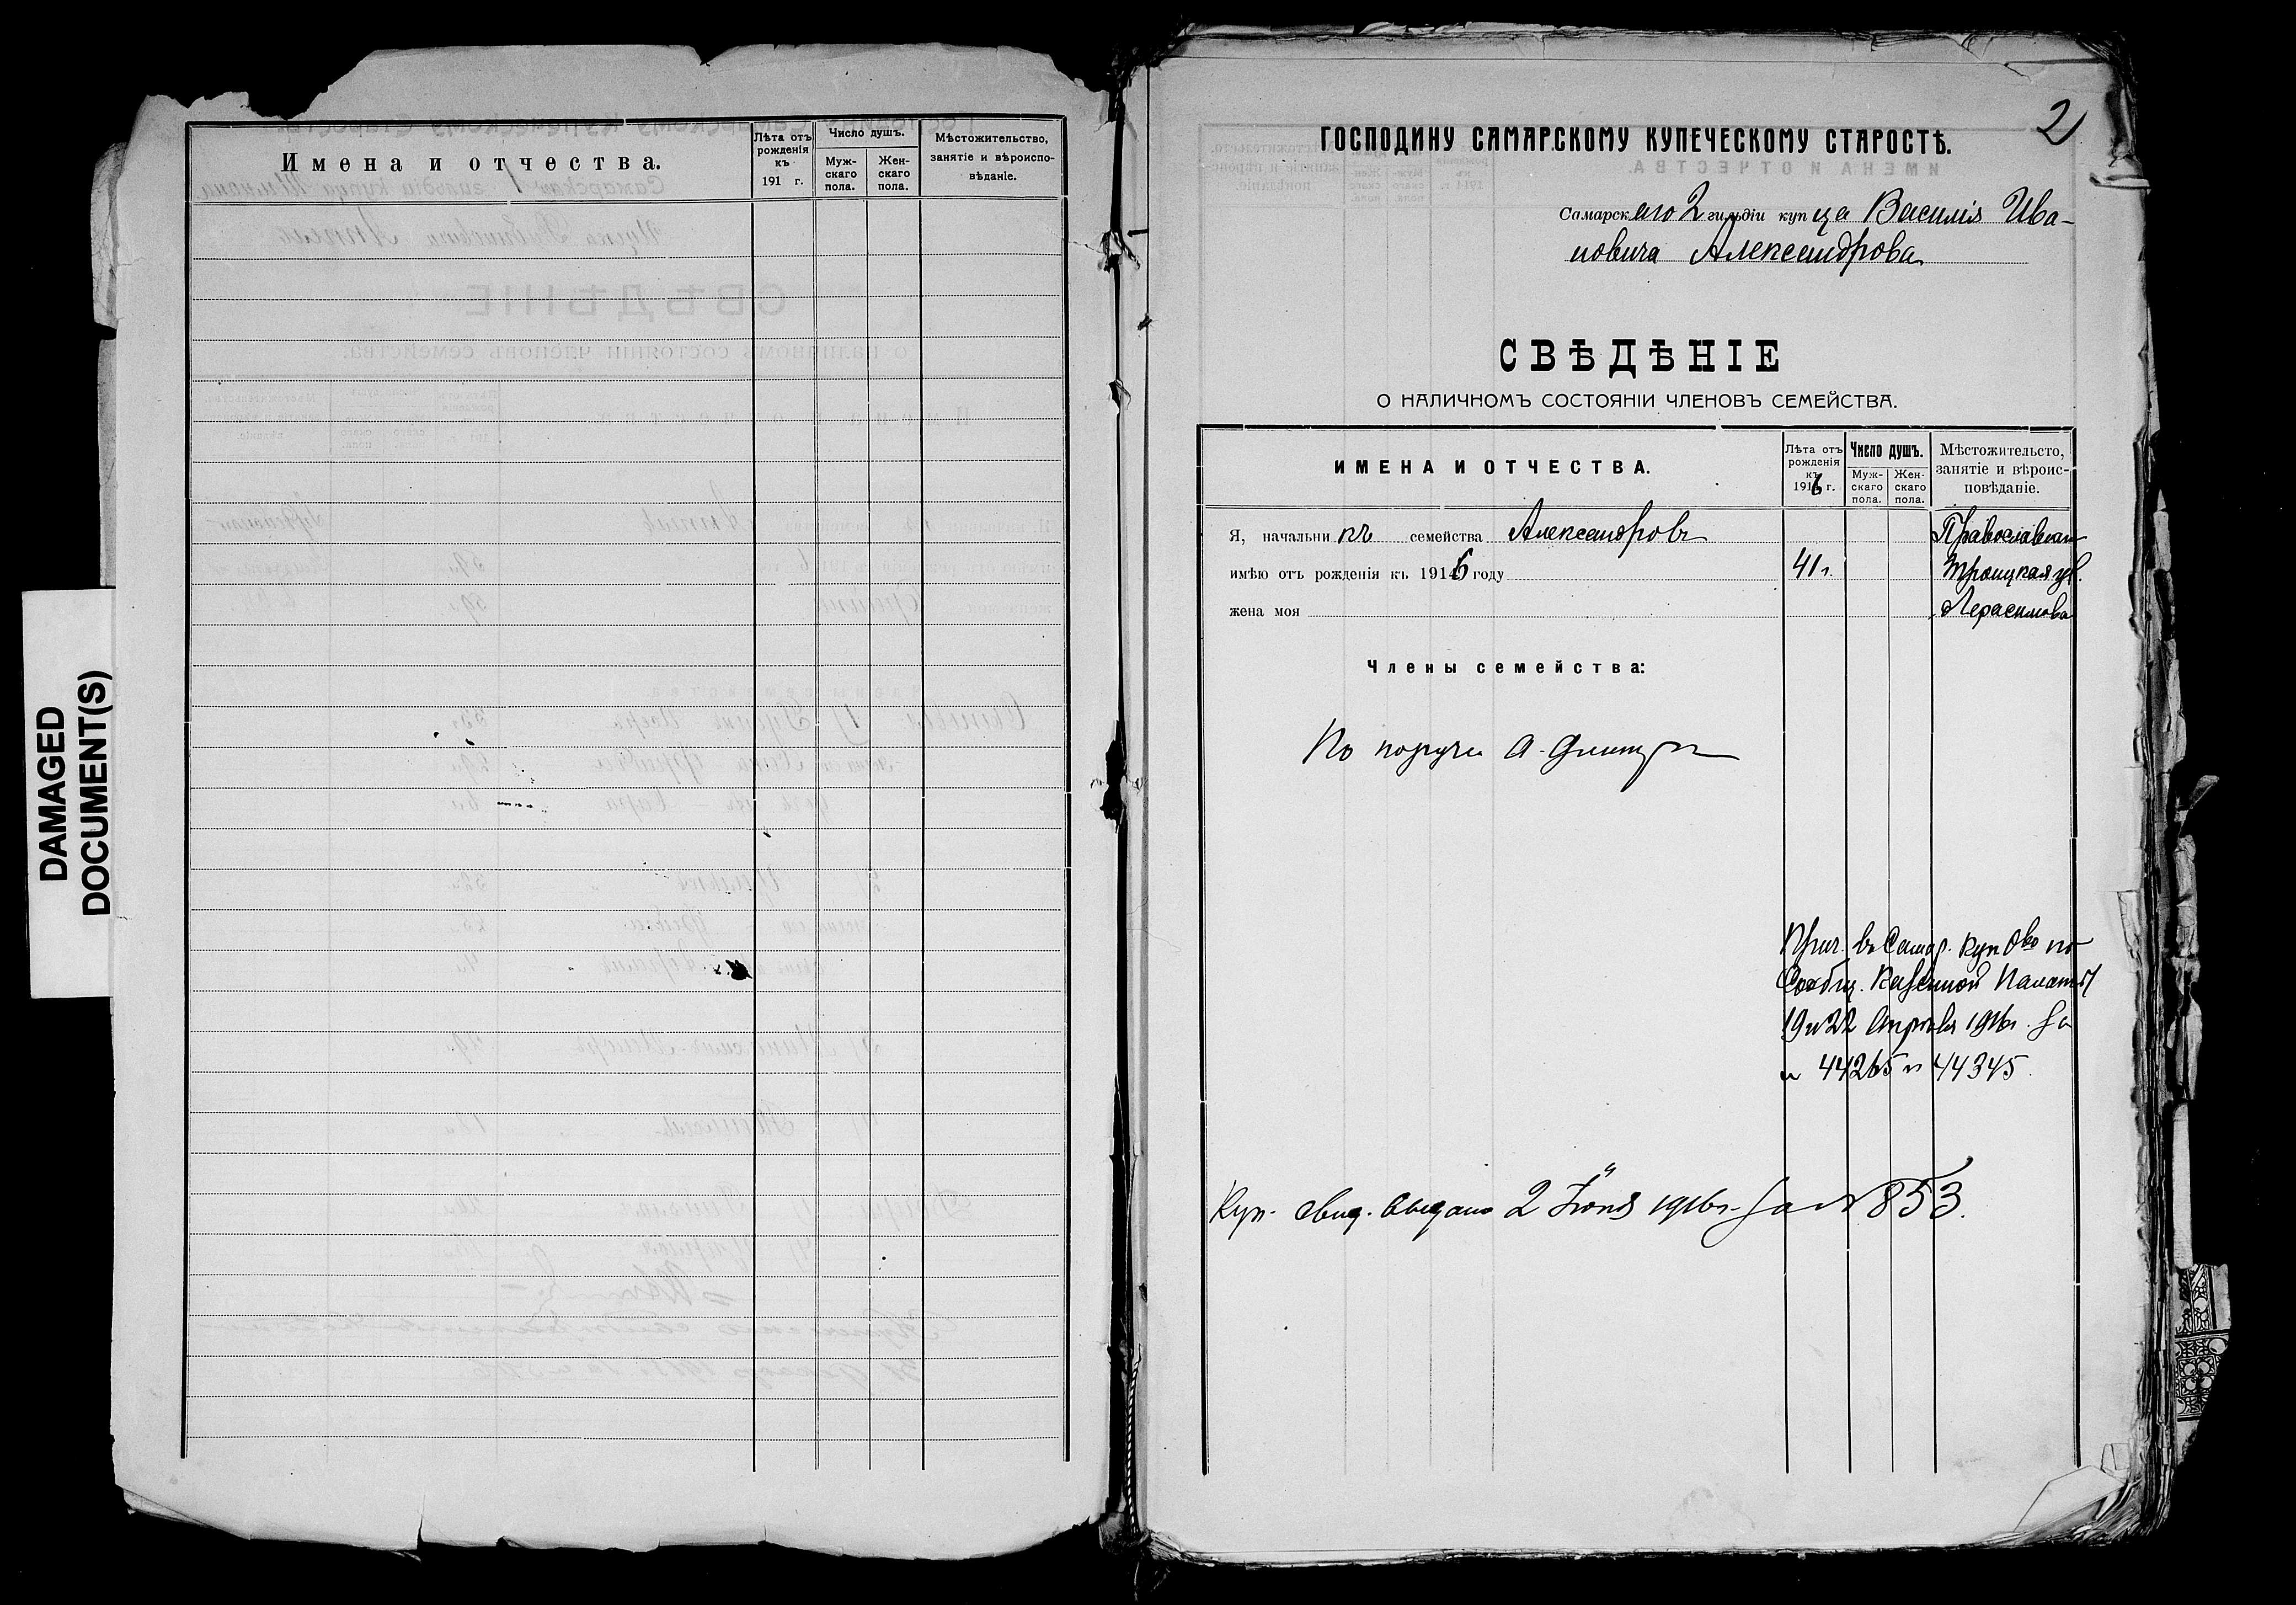 DAMAGED
DOCUMENT(S)
Имена и отчества.
Лѣта отъ рожденія къ 191 г.
Число душъ.
Муж-скаго пола.
Жен-скаго пола.
Мѣстожительство, занятіе и вѣроиспо-вѣданіе.
2
ГОСПОДИНУ САМАРСКОМУ КУПЕЧЕСКОМУ СТАРОСТѢ.
Самарскаго 2 гильдіи купца Василія Ива-
новича Александрова
СВѢДѢНІЕ
О НАЛИЧНОМЪ СОСТОЯНІИ ЧЛЕНОВЪ СЕМЕЙСТВА.
ИМЕНА И ОТЧЕСТВА.
Лѣта отъ рожденія къ 1916 г.
Число душъ.
Муж-скаго пола.
Жен-скаго пола.
Мѣстожительсто, занятіе и вѣроис-повѣданіе.
Я, начальникъ семейства Александровъ
Православная
имѣю отъ рожденія къ 1916 году 41 г.
Троицкая ул.
жена моя
Герасимова
Члены семейства:
По поруч
Прич. въ Самар. куп-во по
Сообщ. Казенной Палаты
19 и 22 Апрѣля 1916 г. за
№ 44265 и 44345.
Куп. свид. выдано 2 Іюня 1916 г. за № 853.